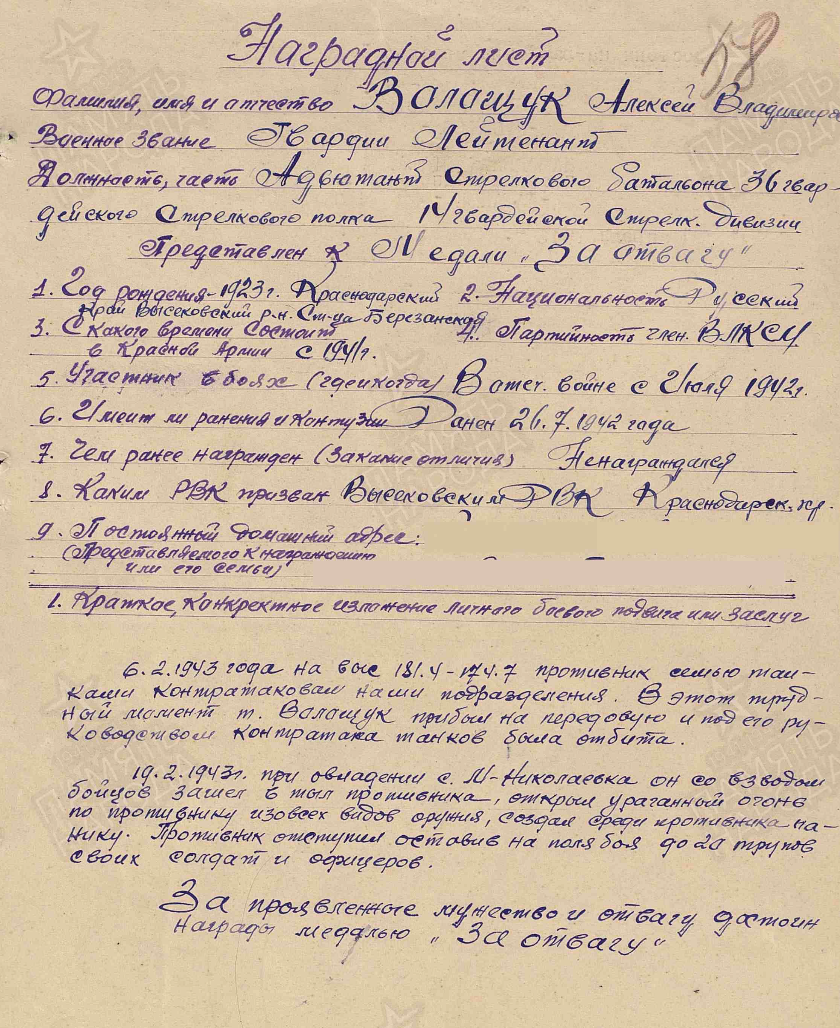 58
Наградной лист
Фамилия, имя и отчество Валащук Алексей Владимиро
Военное звание Гвардии Лейтенант
Должность, часть Адъютант Стрелкового батальона 36 гвар-
дейского Стрелкового полка 14 гвардейской Стрелк. дивизии
Представлен к Медали „За отвагу“
1. Год рождения - 1923 г. Краснодарский 2. Национальность Русский
край Высековский р-н. Ст-ца Березанская
3. С какого времени Состоит 4. Партийность член. ВЛКСМ
в Красной Армии с 1941г.
5. Участник в боях (где и когда) В отеч. войне с Июля 1942г.
6. Имеит ли ранения и контузии Ранен 26.7.1942 года
7. Чем ранее награжден (За какие отличия) Ненаграждался
8. Каким РВК призван Высековским РВК Краснодарск. кр.
9. Постоянный домашний адрес:
(Представляемого к награждению
или его семьи)
1. Краткое, конкректное изложение личного боевого подвига или заслуг
6.2.1943 года на выс 181.4 - 174.7 противник семью тан-
ками контратаковал наши подразделения. В этот труд-
ный момент т. Валащук прибыл на передовую и под его ру-
ководством контратака танков была отбита.
19.2.1943г. при овладении с. М-Николаевка он со взводом
бойцов зашел в тыл противника, открыл ураганный огонь
по противнику изовсех видов оружия, создал среди противника па-
нику. Противник отступил оставив на поля боя до 20 трупов
своих солдат и офицеров.
За проявленные мужество и отвагу достоин
награды медалью „За отвагу“